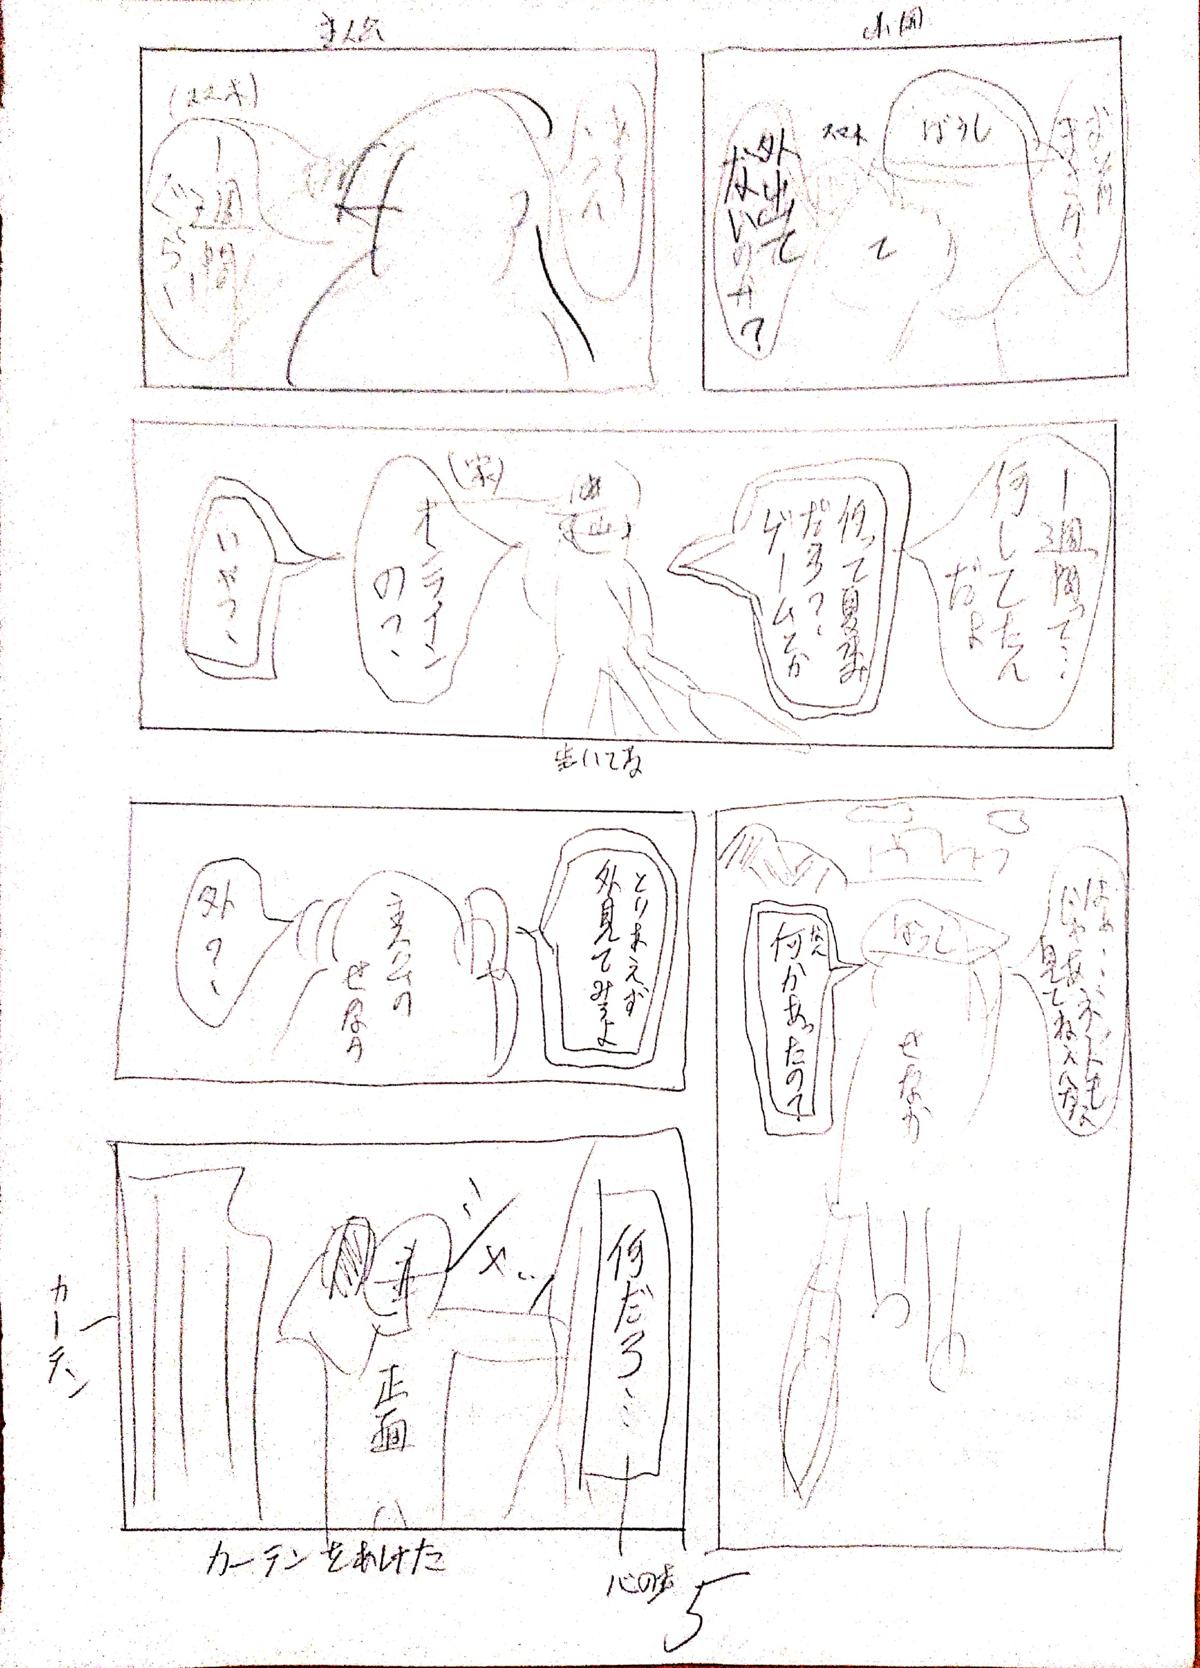 お前
まさか…
ぼうし
スマホ
外出て
ないのか?
(スマホ)
一週間
ぐらい
一週間って…
何してたん
だよ
何って夏休み
だろ?、
ゲームとか
(家)
オンライン
の?、
いやっ、
歩いてる
はぁ……
じゃあネットも
見てねぇんだな
ぼうし
せなか
なん
何かあったの?
とりあえず
外見てみろよ
主人公の
せなか
外?、
何だろ…
シャ…
正面
カーテン
カーテンをあけた
心の声
5